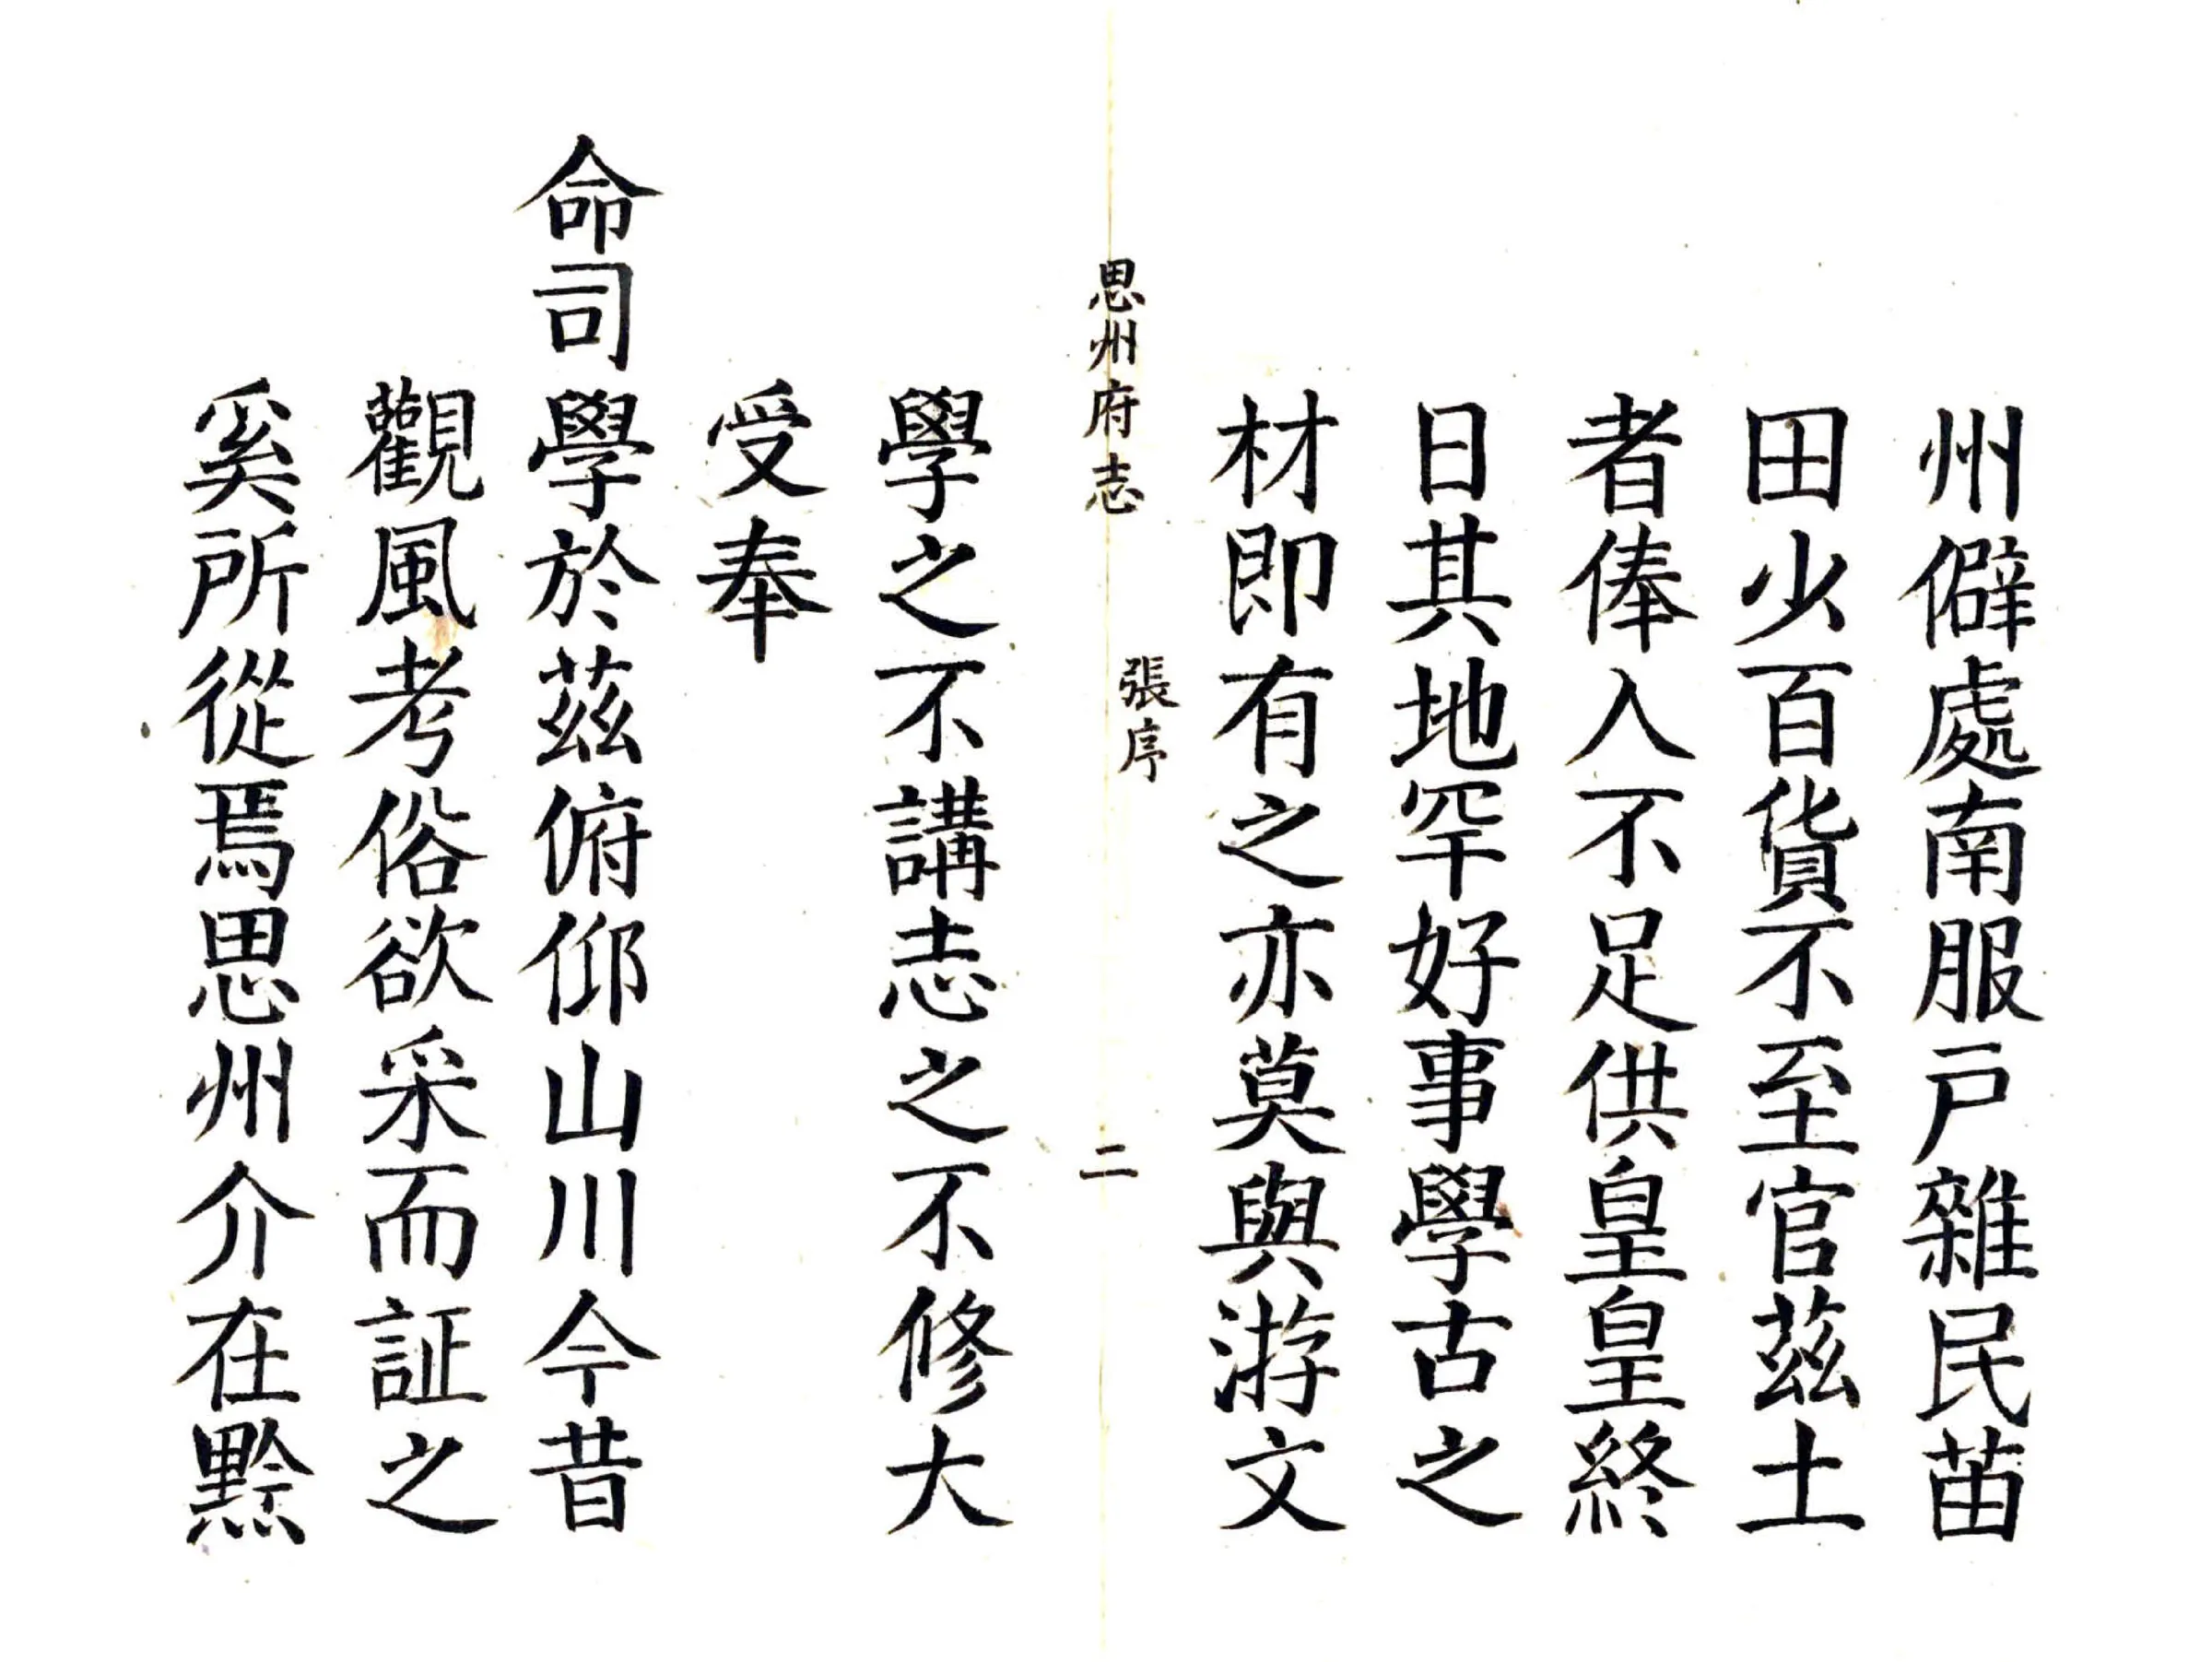 州僻處南服戶雜民苗
田少百貨不至官茲土
者俸入不足供皇皇終
日其地罕好事學古之
材即有之亦莫與游文
思州府志 張序 二
學之不講志之不修大
受奉
命司學於茲俯仰山川今昔
觀風考俗欲采而証之
奚所從焉思州介在黔